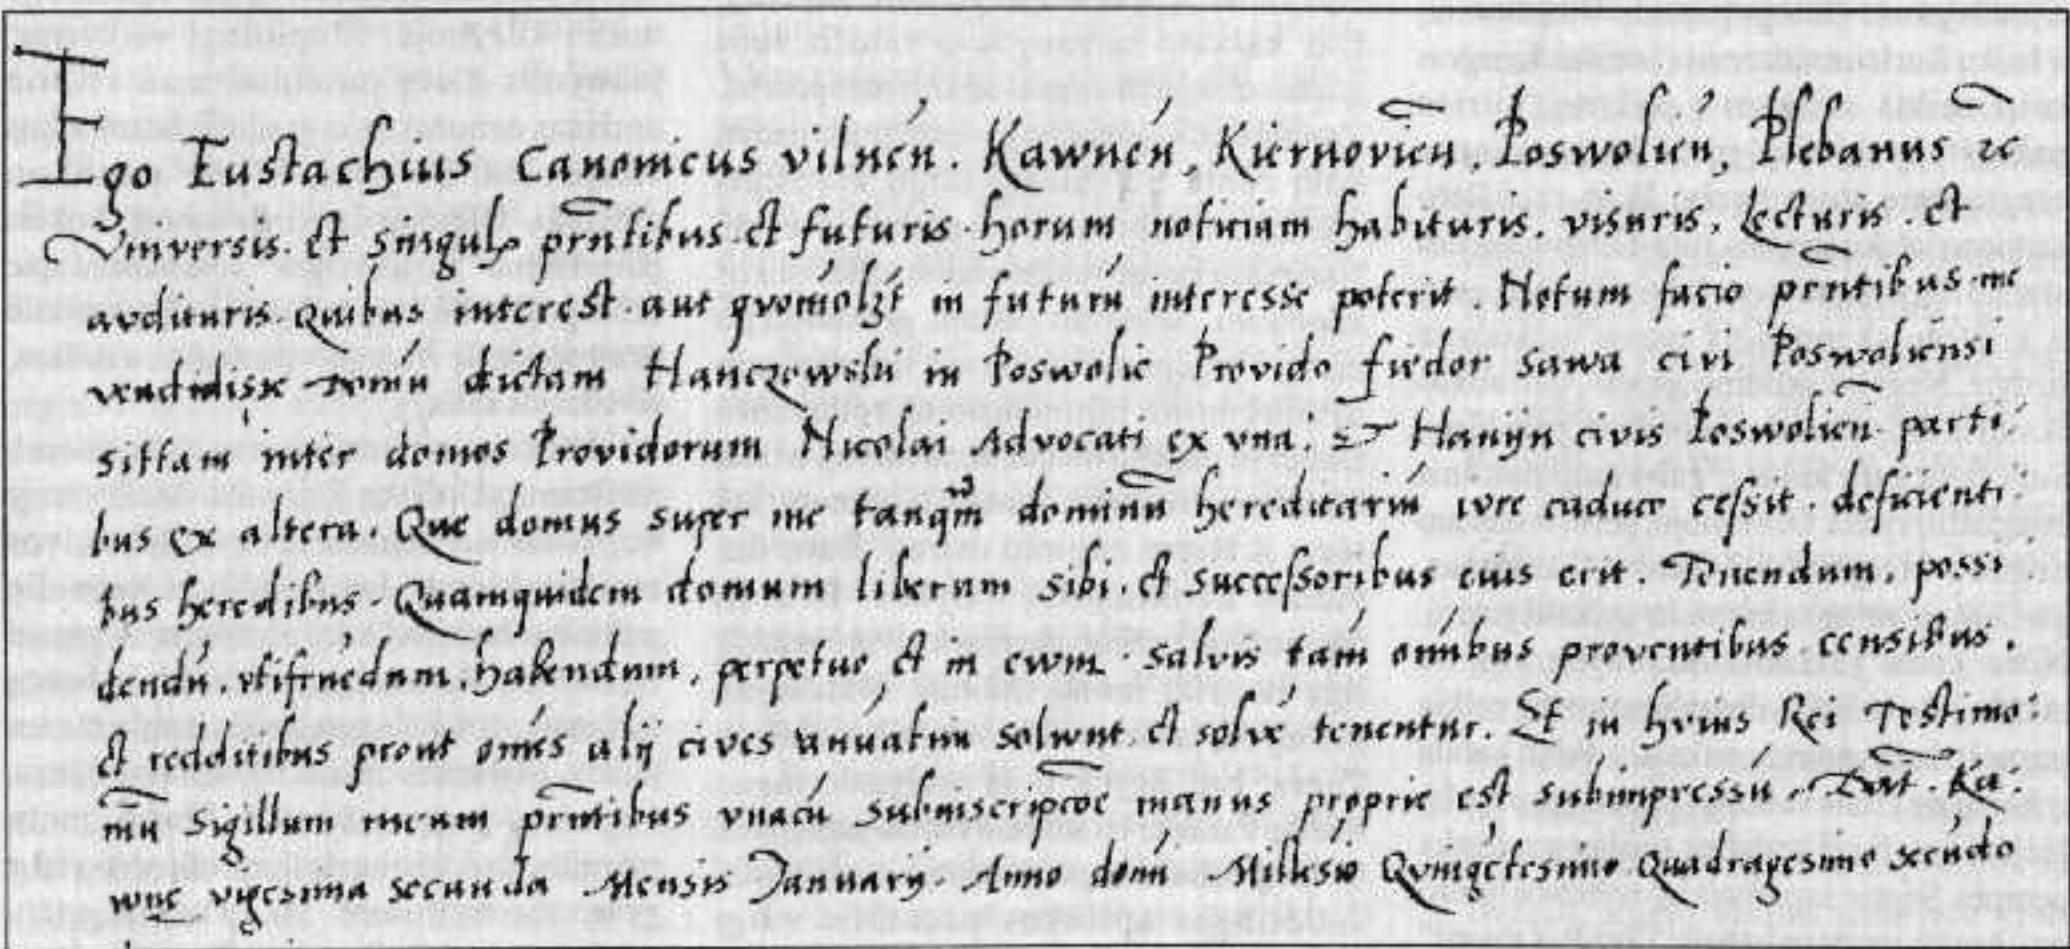 Ego Eustachius Canonicus vilnen̄. Kawnen̄, Kiernovien̄, Poswolien̄, Plebanus ꝛc
Vniversis. et singul̨ pn̄tibus. et futuris. horum noticiam habituris. visuris. Lecturis. et
avdituris. Quibus interest. aut qvomōlʒt in futurū interesse poterit. Notum facio pn̄tibus. me
vendidisse domū dictam Hanczowski in Poswolie Provido fiedor sawa civi Poswoliensi
sittam inter domos Providorum Nicolai Advocati ex vna: Et Hanijn civis Poswolien̄. parti:
bus ex altera. Que domus super me tanqm̄ dominū hereditariū iure caduco cessit. deficienti:
bus heredibus. Quamquidem domum liberam sibi. et successoribus eius erit. Tenendum. possi:
dendū. vtifruēdum. habendum. perpetuo et in ewm. salvis tam̄ om̄ibus proventibus. censibus.
et redditibus prout om̄es alij cives annuatim solwnt. et solvē tenentur. Et in hvius Rei Testimo:
niū Sigillum meum pn̄tibus vnacū subinscripcōe manus proprie est subimpressū. Dat̄. Ka:
wne vigesima secunda Mensis Januarij. Anno domī Millesīo Qvingētesimo Quadragesimo secūdo